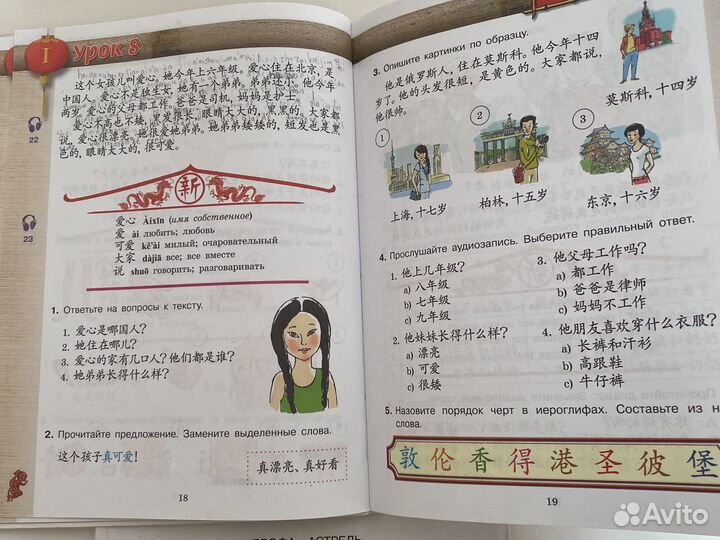 I Урок 8
这个女孩儿叫爱心。她今年上六年级。爱心住在北京，是
中国人。爱心不是独生女，她有一个弟弟。弟弟还小。他今年
两岁。爱心的父母都工作。爸爸是司机，妈妈是护士。
爱心不高也不矮，黑发很长，眼睛大大的，黑黑的。大家都
说，爱心很漂亮。她很爱她弟弟。她弟弟矮矮的，短发也是黑
色的，眼睛大大的，很可爱。
22
新
23
爱心 Àixīn (имя собственное)
爱 ài любить; любовь
可爱 kě'ài милый; очаровательный
大家 dàjiā все; все вместе
说 shuō говорить; разговаривать
1. Ответьте на вопросы к тексту.
1. 爱心是哪国人？
2. 她住在哪儿？
3. 爱心的家有几口人？他们都是谁？
4. 她弟弟长得什么样？
2. Прочитайте предложение. Замените выделенные слова.
这个孩子真可爱！
真漂亮、真好看
18
3. Опишите картинки по образцу.
他是俄罗斯人，住在莫斯科。他今年十四
岁了。他的头发很短，是黄色的。大家都说，
他很帅。
莫斯科，十四岁
1
2
3
上海，十七岁
柏林，十五岁
东京，十六岁
4. Прослушайте аудиозапись. Выберите правильный ответ.
1. 他上几年级？
a) 八年级
b) 七年级
c) 九年级
2. 他妹妹长得什么样？
a) 漂亮
b) 可爱
c) 很矮
3. 他父母工作吗？
a) 都工作
b) 爸爸是律师
c) 妈妈不工作
4. 他朋友喜欢穿什么衣服？
a) 长裤和汗衫
b) 高跟鞋
c) 牛仔裤
5. Назовите порядок черт в иероглифах. Составьте из н
слова.
敦 伦 香 得 港 圣 彼 堡
19
Avito